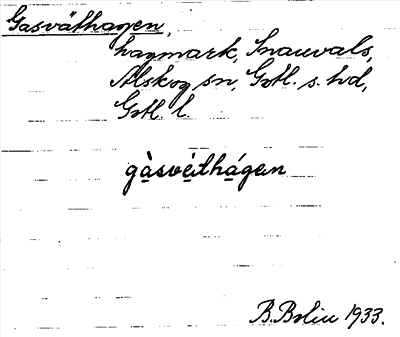 Gasväthagen,
hagmark, Snauvals,
Alskog sn, Gotl. s. hd,
Gotl. l.
gàsvèithágen
B. Bolin 1933.